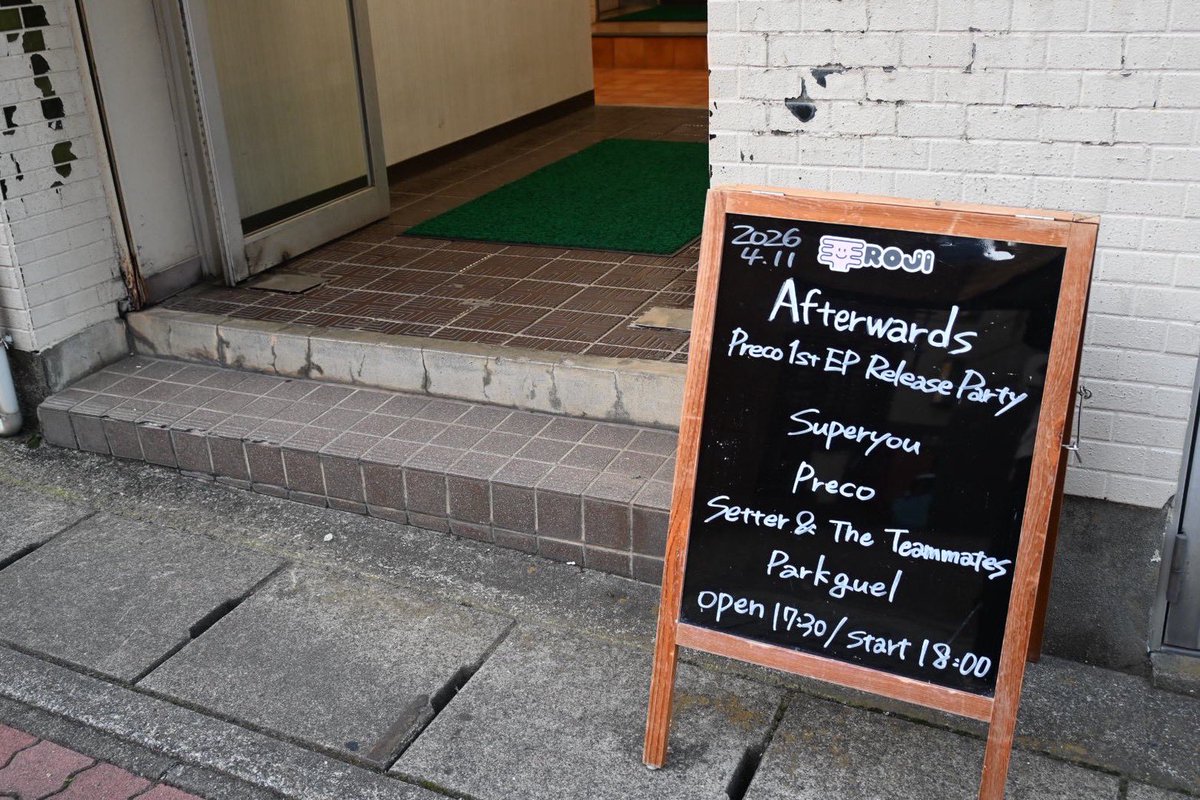 2026
4.11
ROJI
Afterwards
Preco 1st EP Release Party
Superyou
Preco
Setter & The Teammates
Parkguel
open 17:30/start 18:00